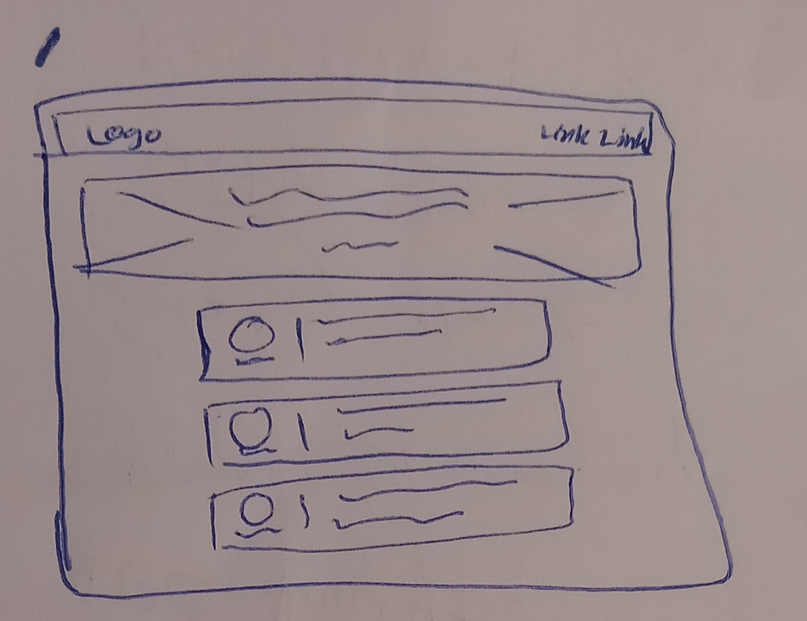 Logo
Link Link